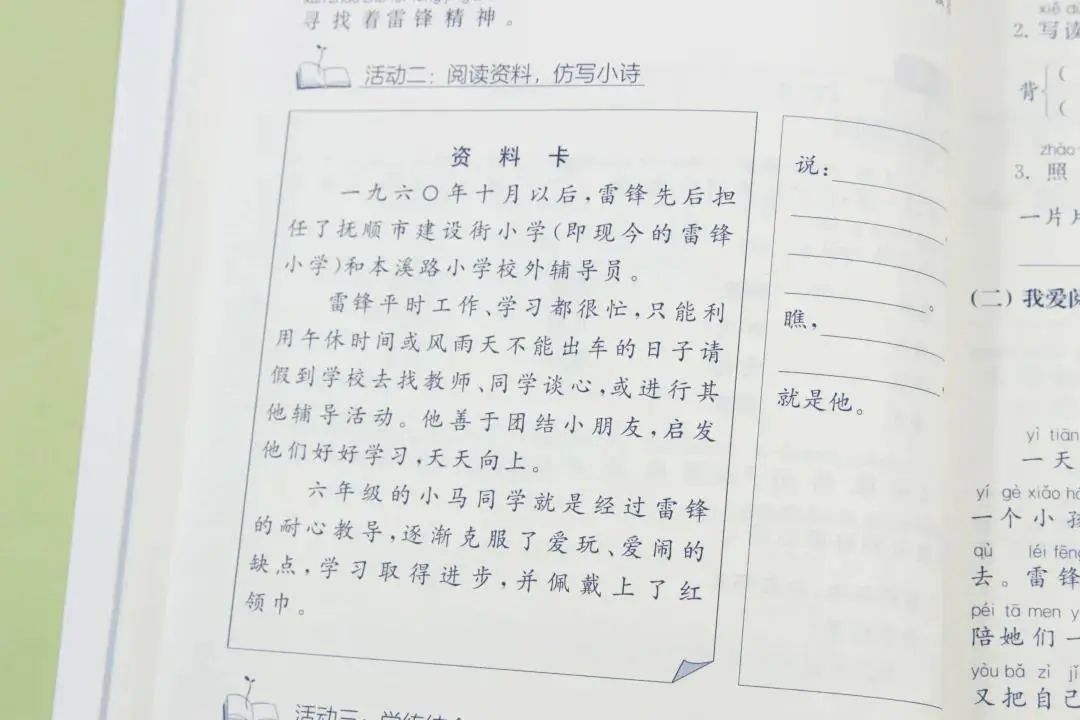 寻找着雷锋精神。
活动二：阅读资料，仿写小诗
资料卡
一九六〇年十月以后，雷锋先后担
任了抚顺市建设街小学（即现今的雷锋
小学）和本溪路小学校外辅导员。
雷锋平时工作、学习都很忙，只能利
用午休时间或风雨天不能出车的日子请
假到学校去找教师、同学谈心，或进行其
他辅导活动。他善于团结小朋友，启发
他们好好学习，天天向上。
六年级的小马同学就是经过雷锋
的耐心教导，逐渐克服了爱玩、爱闹的
缺点，学习取得进步，并佩戴上了红
领巾。
说：
。
瞧，
，
就是他。
2. 写读
背
（
（
zhào
3. 照
一片片
（二）我爱阅
yì tiān
一天
yí gè xiǎo
一个小孩
qù léi fēng
去。雷锋
péi tā men
陪她们一
yòu bǎ zì jǐ
又把自己